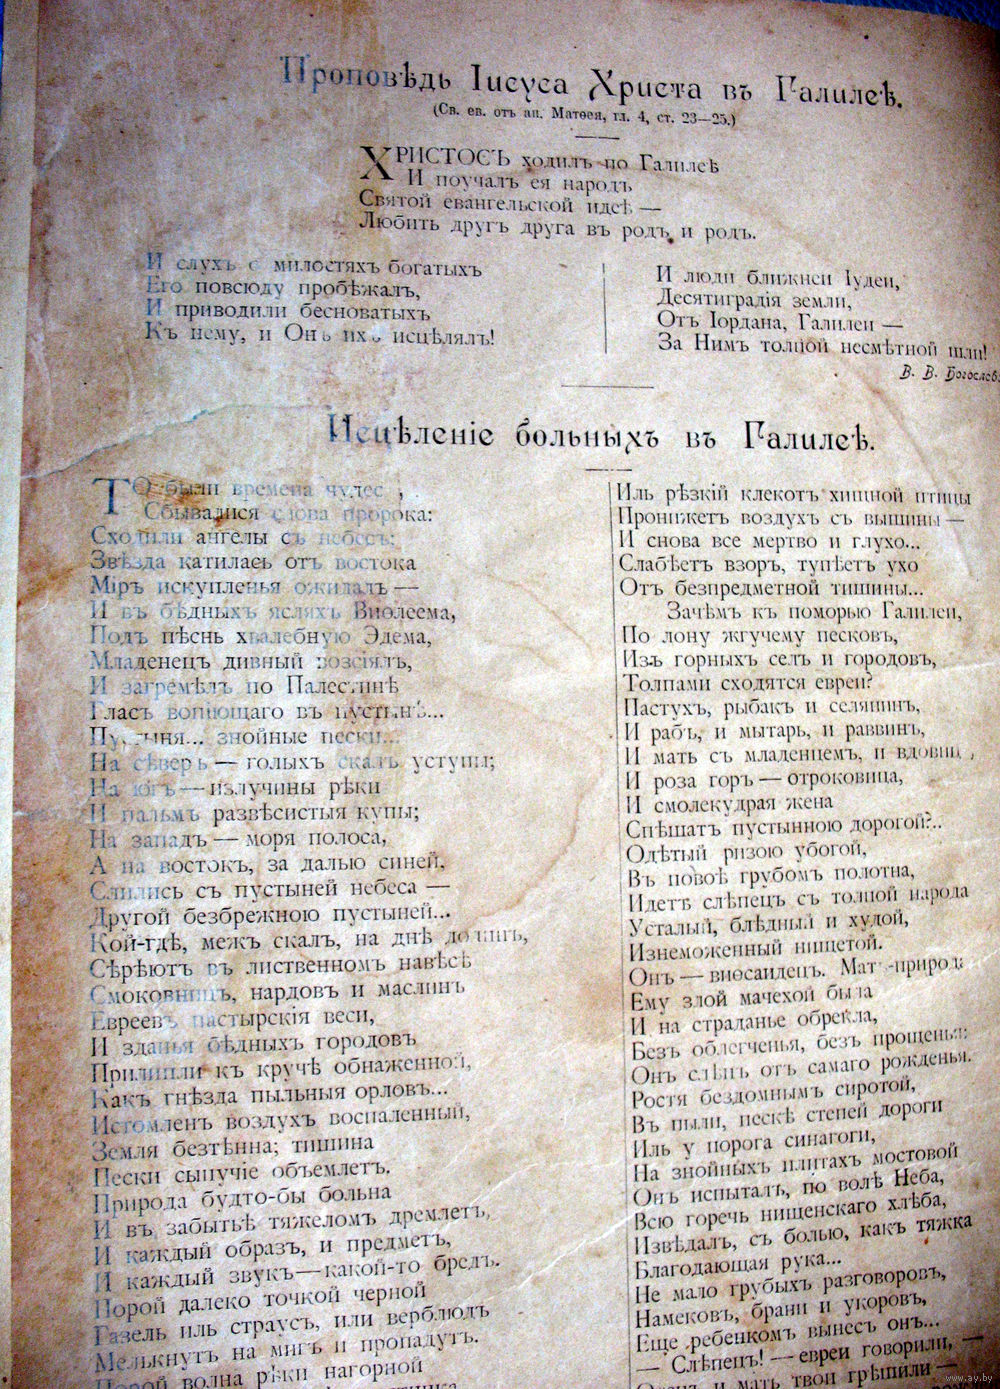 Проповѣдь Іисуса Христа въ Галилеѣ.
(Св. ев. отъ ап. Матѳея, гл. 4, ст. 23—25.)
ХРИСТОСЪ ходилъ по Галилеѣ
И поучалъ ея народъ
Святой евангельской идеѣ —
Любить другъ друга въ родъ и родъ.
И слухъ о милостяхъ богатыхъ
Его повсюду пробѣжалъ,
И приводили бесноватыхъ
Къ нему, и Онъ ихъ исцѣлялъ!
И люди ближней Іудеи,
Десятиградія земли,
Отъ Іордана, Галилеи —
За Нимъ толпой несмѣтной шли!
В. В. Богослов.
Исцѣленіе больныхъ въ Галилеѣ.
ТО были времена чудес,
Сбывалися слова пророка:
Сходили ангелы съ небесъ;
Звѣзда катилась отъ востока
Міръ искупленья ожидалъ —
И въ бѣдныхъ ясляхъ Виѳлеема,
Подъ пѣснь хвалебную Эдема,
Младенецъ дивный возсіялъ,
И загремѣлъ по Палестинѣ
Гласъ вопіющаго въ пустынѣ...
Пустыня... знойные пески...
На сѣверъ — голыхъ скалъ уступы;
На югъ — излучины рѣки
И пальмъ развѣсистыя купы;
На западъ — моря полоса,
А на востокъ, за далью синей,
Слились съ пустыней небеса —
Другой безбрежною пустыней...
Кой-гдѣ, межъ скалъ, на днѣ долинъ,
Сѣрѣютъ въ лиственномъ навѣсѣ
Смоковницъ, нардовъ и маслинъ
Евреевъ пастырскія веси,
И зданья бѣдныхъ городовъ
Прилипли къ кручѣ обнаженной,
Какъ гнѣзда пыльныя орловъ...
Истомленъ воздухъ воспаленный,
Земля безтѣнна; тишина
Пески сыпучіе объемлетъ.
Природа будто-бы больна
И въ забытьѣ тяжеломъ дремлетъ,
И каждый образъ, и предметъ,
И каждый звукъ — какой-то бредъ.
Порой далеко точкой черной
Газель иль страусъ, или верблюдъ
Мелькнутъ на мигъ и пропадутъ.
Порой волна рѣки нагорной
Иль рѣзкій клекотъ хищной птицы
Пронижетъ воздухъ съ вышины —
И снова все мертво и глухо...
Слабѣетъ взоръ, тупѣетъ ухо
Отъ безпредметной тишины...
Зачѣмъ къ поморью Галилеи,
По лону жгучему песковъ,
Изъ горныхъ селъ и городовъ,
Толпами сходятся евреи?
Пастухъ, рыбакъ и селянинъ,
И рабъ, и мытарь, и раввинъ,
И мать съ младенцемъ, и вдовица,
И роза горъ — отроковица,
И смолекудрая жена
Спѣшатъ пустынною дорогой?..
Одѣтый ризою убогой,
Въ повоѣ грубомъ полотна,
Идетъ слѣпецъ съ толпой народа
Усталый, блѣдный и худой,
Изнеможенный нищетой.
Онъ — виѳсаидецъ. Мать-природа
Ему злой мачехой была
И на страданье обрекла,
Безъ облегченья, безъ прощенья:
Онъ слѣпъ отъ самаго рожденья.
Ростя бездомнымъ сиротой,
Въ пыли, пескѣ степей дороги
Иль у порога синагоги,
На знойныхъ плитахъ мостовой
Онъ испыталъ, по волѣ Неба,
Всю горечь нищенскаго хлѣба,
Извѣдалъ, съ болью, какъ тяжка
Благодающая рука...
Не мало грубыхъ разговоровъ,
Намековъ, брани и укоровъ,
Еще ребенкомъ вынесъ онъ...
— Слѣпецъ! — евреи говорили, —
и мать твои грѣшили —
www.ay.by